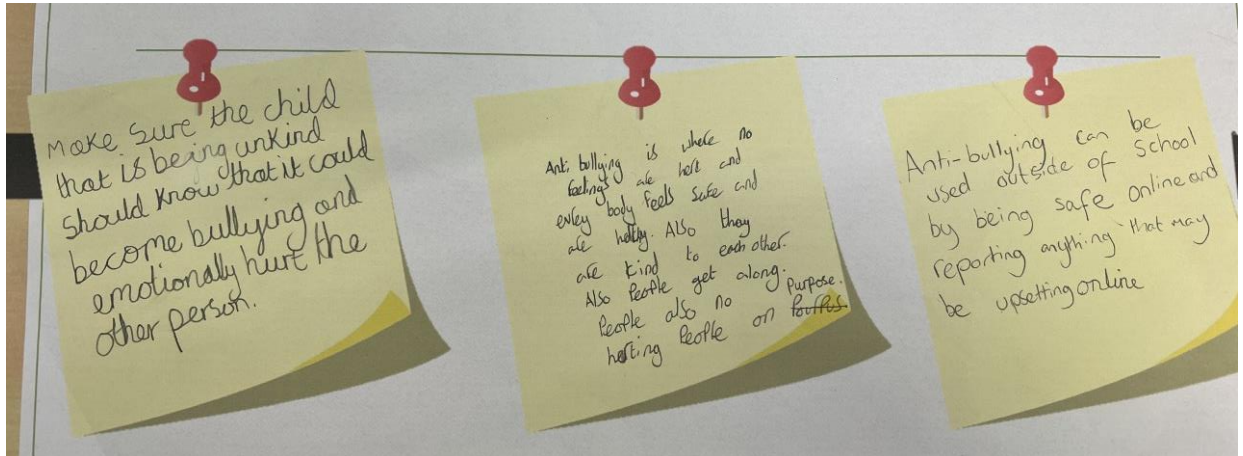 Make Sure the child
that is being unkind
should know that it could
become bullying and
emotionally hurt the
other person.
Anti bullying is where no
feelings are hert and
evrey body feels Safe and
are . Also they
are kind to each other.
Also People get along.
People also no
herting People on purpose.
Anti-bullying can be
used outside of School
by being safe online and
reporting anything that may
be upsetting online